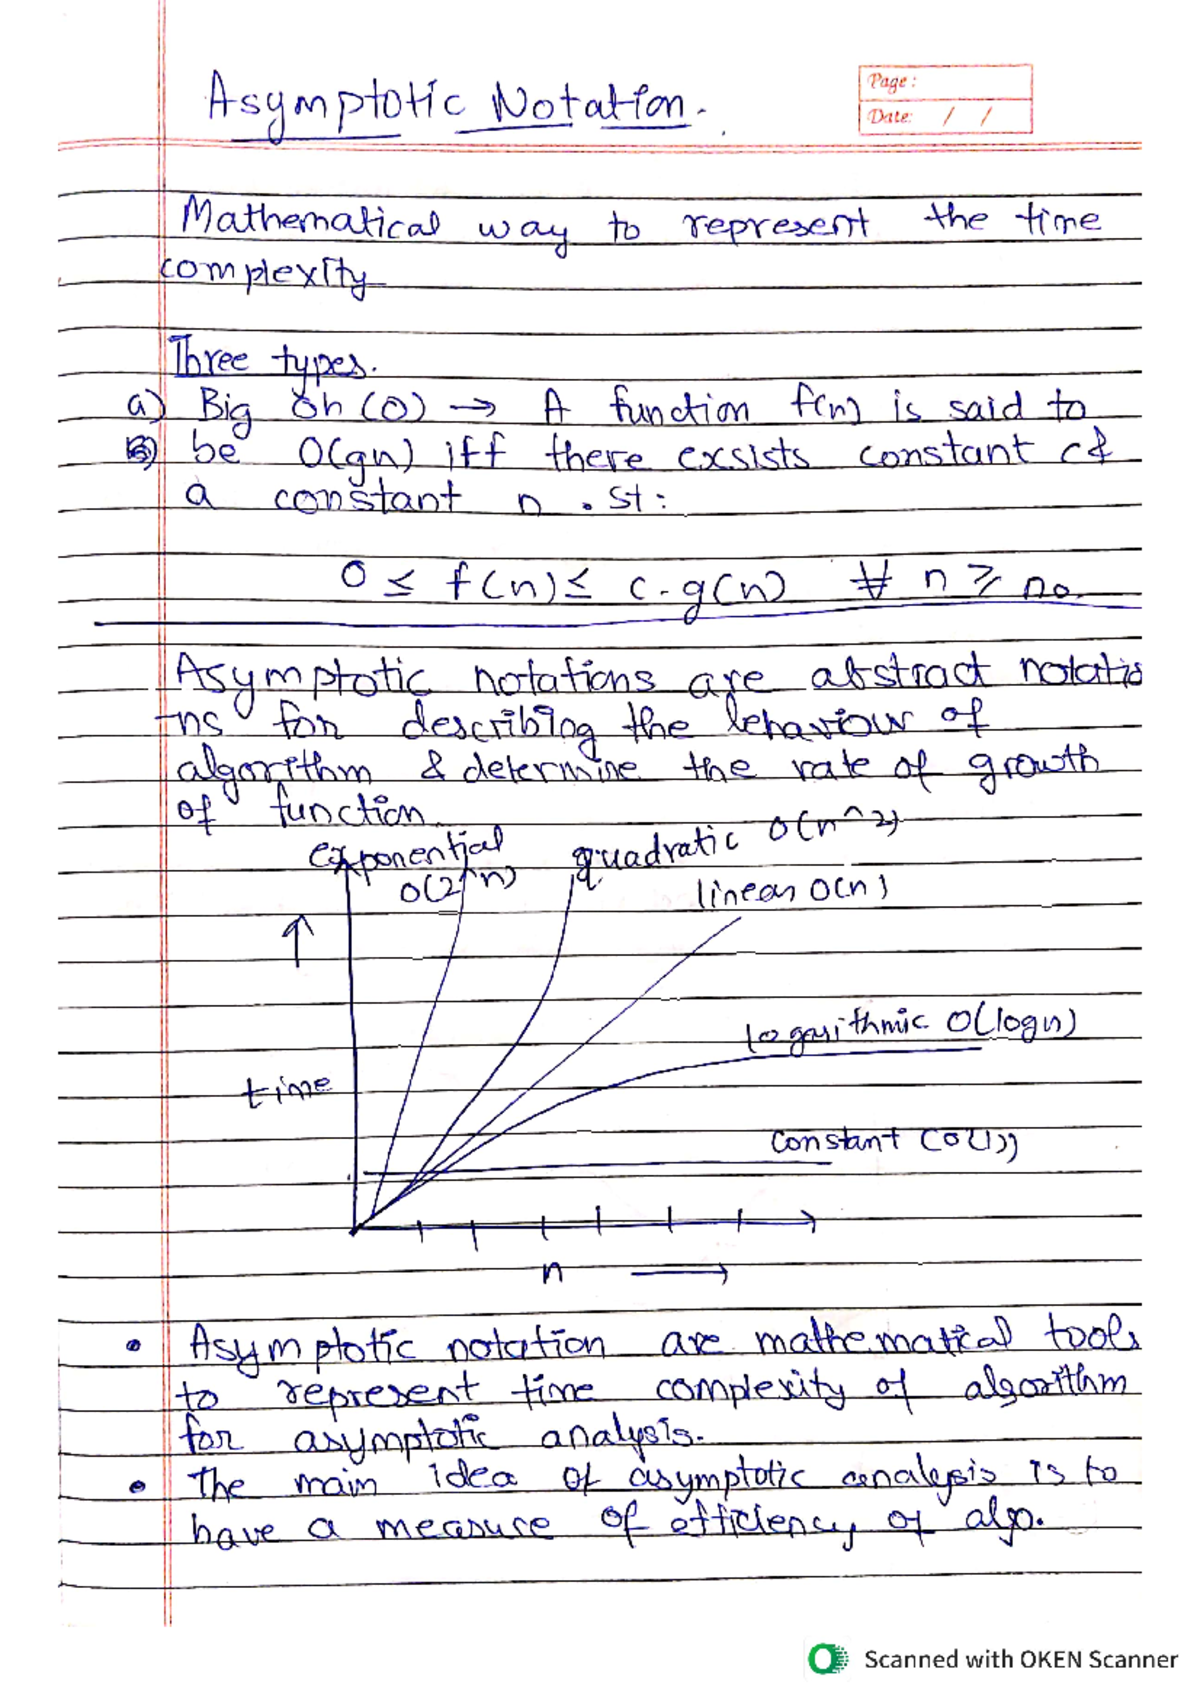 Asymptotic Notation.
Page:
Date: / /
Mathematical way to represent the time
complexity
Three types.
a) Big Oh (O) → A function f(n) is said to
be O(gn) iff there exsists constant c &
a constant n . st:
0 ≤ f(n) ≤ c.g(n) ∀ n ≥ n₀.
Asymptotic notations are abstract notatio
-ns for describing the behaviour of
algorithm & determine the rate of growth
of function
exponential
O(2^n)
quadratic O(n^2)
linear O(n)
↑
logarithmic O(logn)
time
constant (O(1))
n →
• Asymptotic notation are mathematical tools
to represent time complexity of algorithm
for asymptotic analysis.
• The main idea of asymptotic analysis is to
have a measure of efficiency of algo.
Scanned with OKEN Scanner